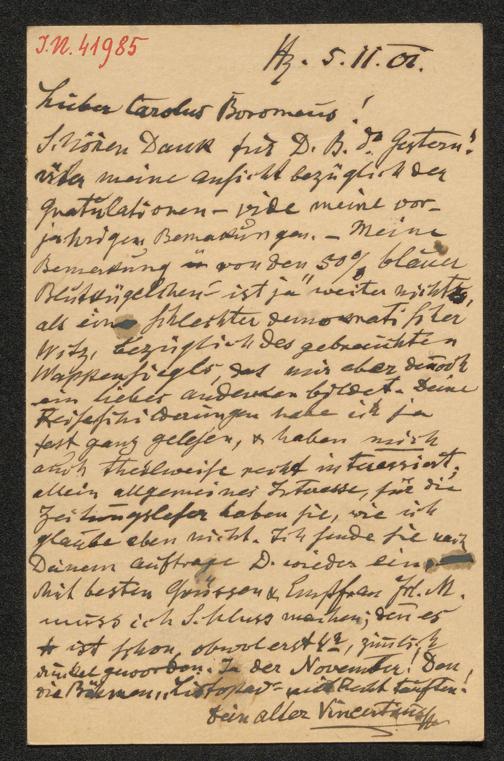 I.N. 41985
Hz. 5. 11. 01.
Lieber Carolus Boromeus!
Schönen Dank für D. B. d. Gestern!
über meine Ansicht bezüglich der
Gratulationen – vide meine vor-
jährigen Bemerkungen. – Meine
Bemerkung von den 50% blauer
Blutkügelchen ist ja weiter nichts,
als ein schlechter demokratischer
Witz, bezüglich des gebrauchten
Wappensiegls, das mir aber dennoch
ein liebes Andenken bildet. Deine
Reiseschilderungen habe ich ja
fast ganz gelesen, & haben mich
auch theilweise recht interessirt,
allein allgemeines Interesse, für die
Zeitungsleser haben sie, wie ich
glaube eben nicht. Ich sende sie nach
Deinem Auftrage D. wieder ein.
Mit besten Grüssen & Empf an Frl. M.
muss ich Schluss machen; denn es
ist schon, obwol erst 4, ziemlich
dunkel geworden. Ja der November! Den
die Böhmen „Listopad" mit Recht tauften!
Dein alter Vincentius